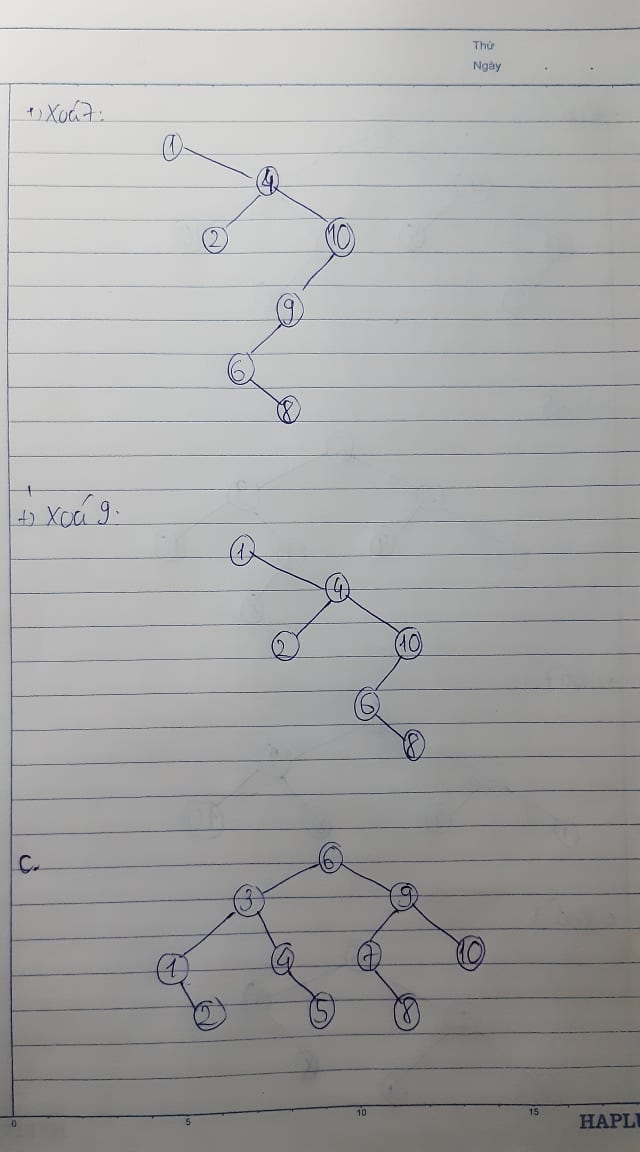 Thứ
Ngày . .
+) Xoá 7:
1
4
2 10
9
6
8
+) Xoá 9:
1
4
2 10
6
8
C.
6
3 9
1 4 7 10
2 5 8
0 5 10 15
HAPLU